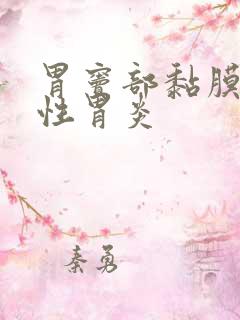 胃窦部黏膜
性胃炎
秦勇